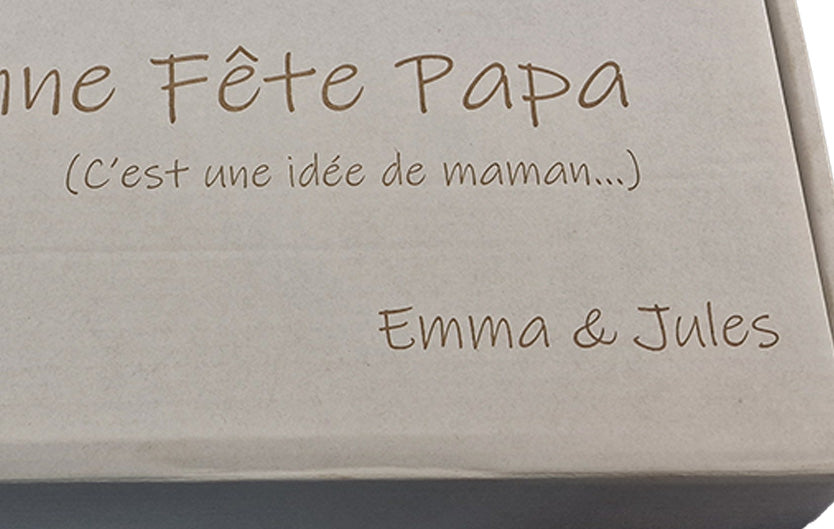 nne Fête Papa
(C'est une idée de maman...)
Emma & Jules